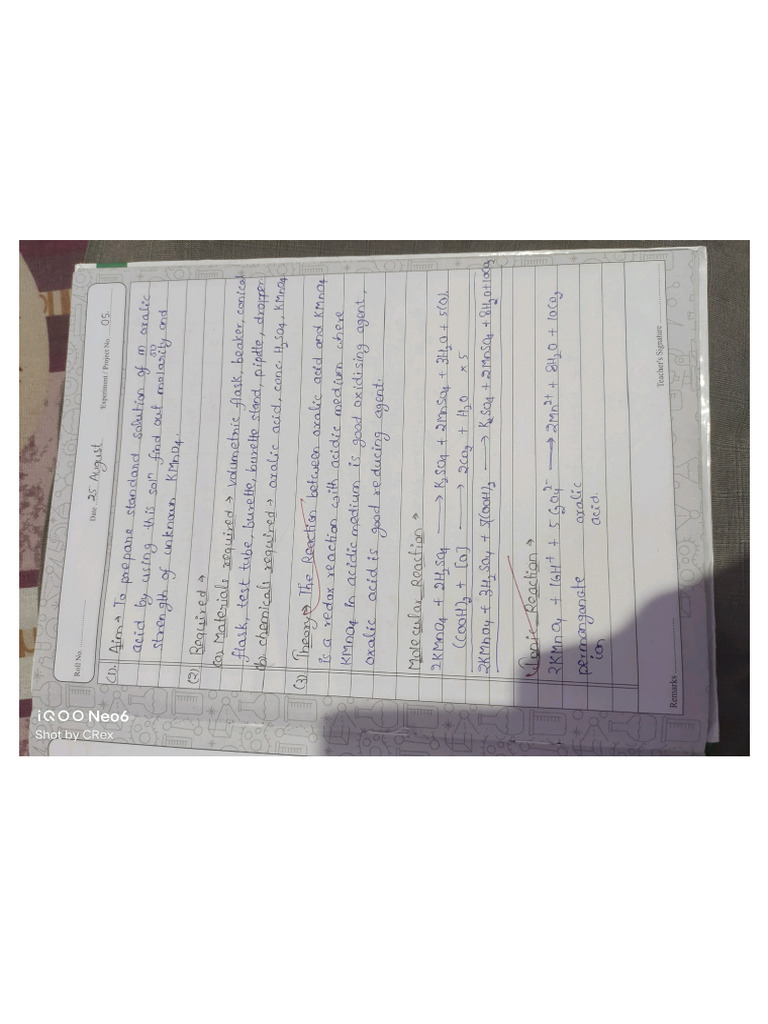 Roll No.
Date 25 August
Experiment / Project No. 05.
(1). Aim → To prepare standard solution of m/50 oxalic
acid by using this soln find out molarity and
strength of unknown KMnO4.
(2) Required →
(a) Materials required → volumetric flask, beaker, conical
flask, test tube, burette, burette stand, pipdte, dropper
(b). chemicals required → oxalic acid, conc. H2SO4, KMnO4
(3) Theory → The Reaction between oxalic acid and KMnO4
is a redox reaction with acidic medium where
KMnO4 in acidic medium is good oxidising agent,
oxalic acid is good reducing agent.
Molecular Reaction →
2KMnO4 + 2H2SO4 → K2SO4 + 2MnSO4 + 3H2O + 5(O).
(COOH)2 + [O] → 2CO2 + H2O × 5
2KMnO4 + 3H2SO4 + 5(COOH)2 → K2SO4 + 2MnSO4 + 8H2O + 10CO2
Ionic Reaction →
2KMnO4 + 16H+ + 5C2O4 2- → 2Mn2+ + 8H2O + 10CO2
permanganate oxalic
ion acid.
Remarks
Teacher's Signature
iQOO Neo6
Shot by CRex